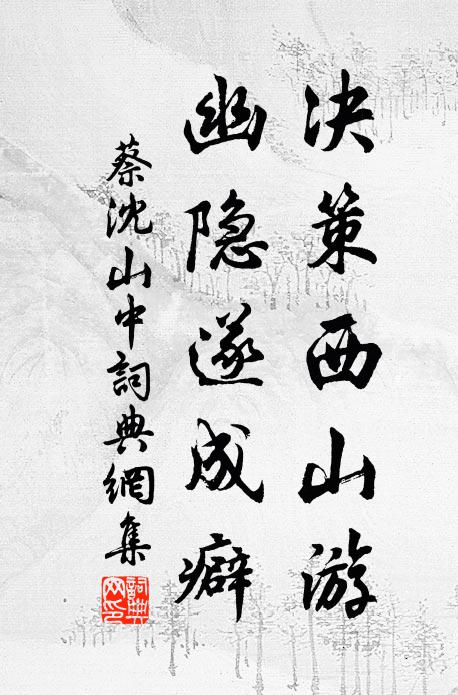 决策西山游
幽隐遂成癖
蔡沈山中詞典網集